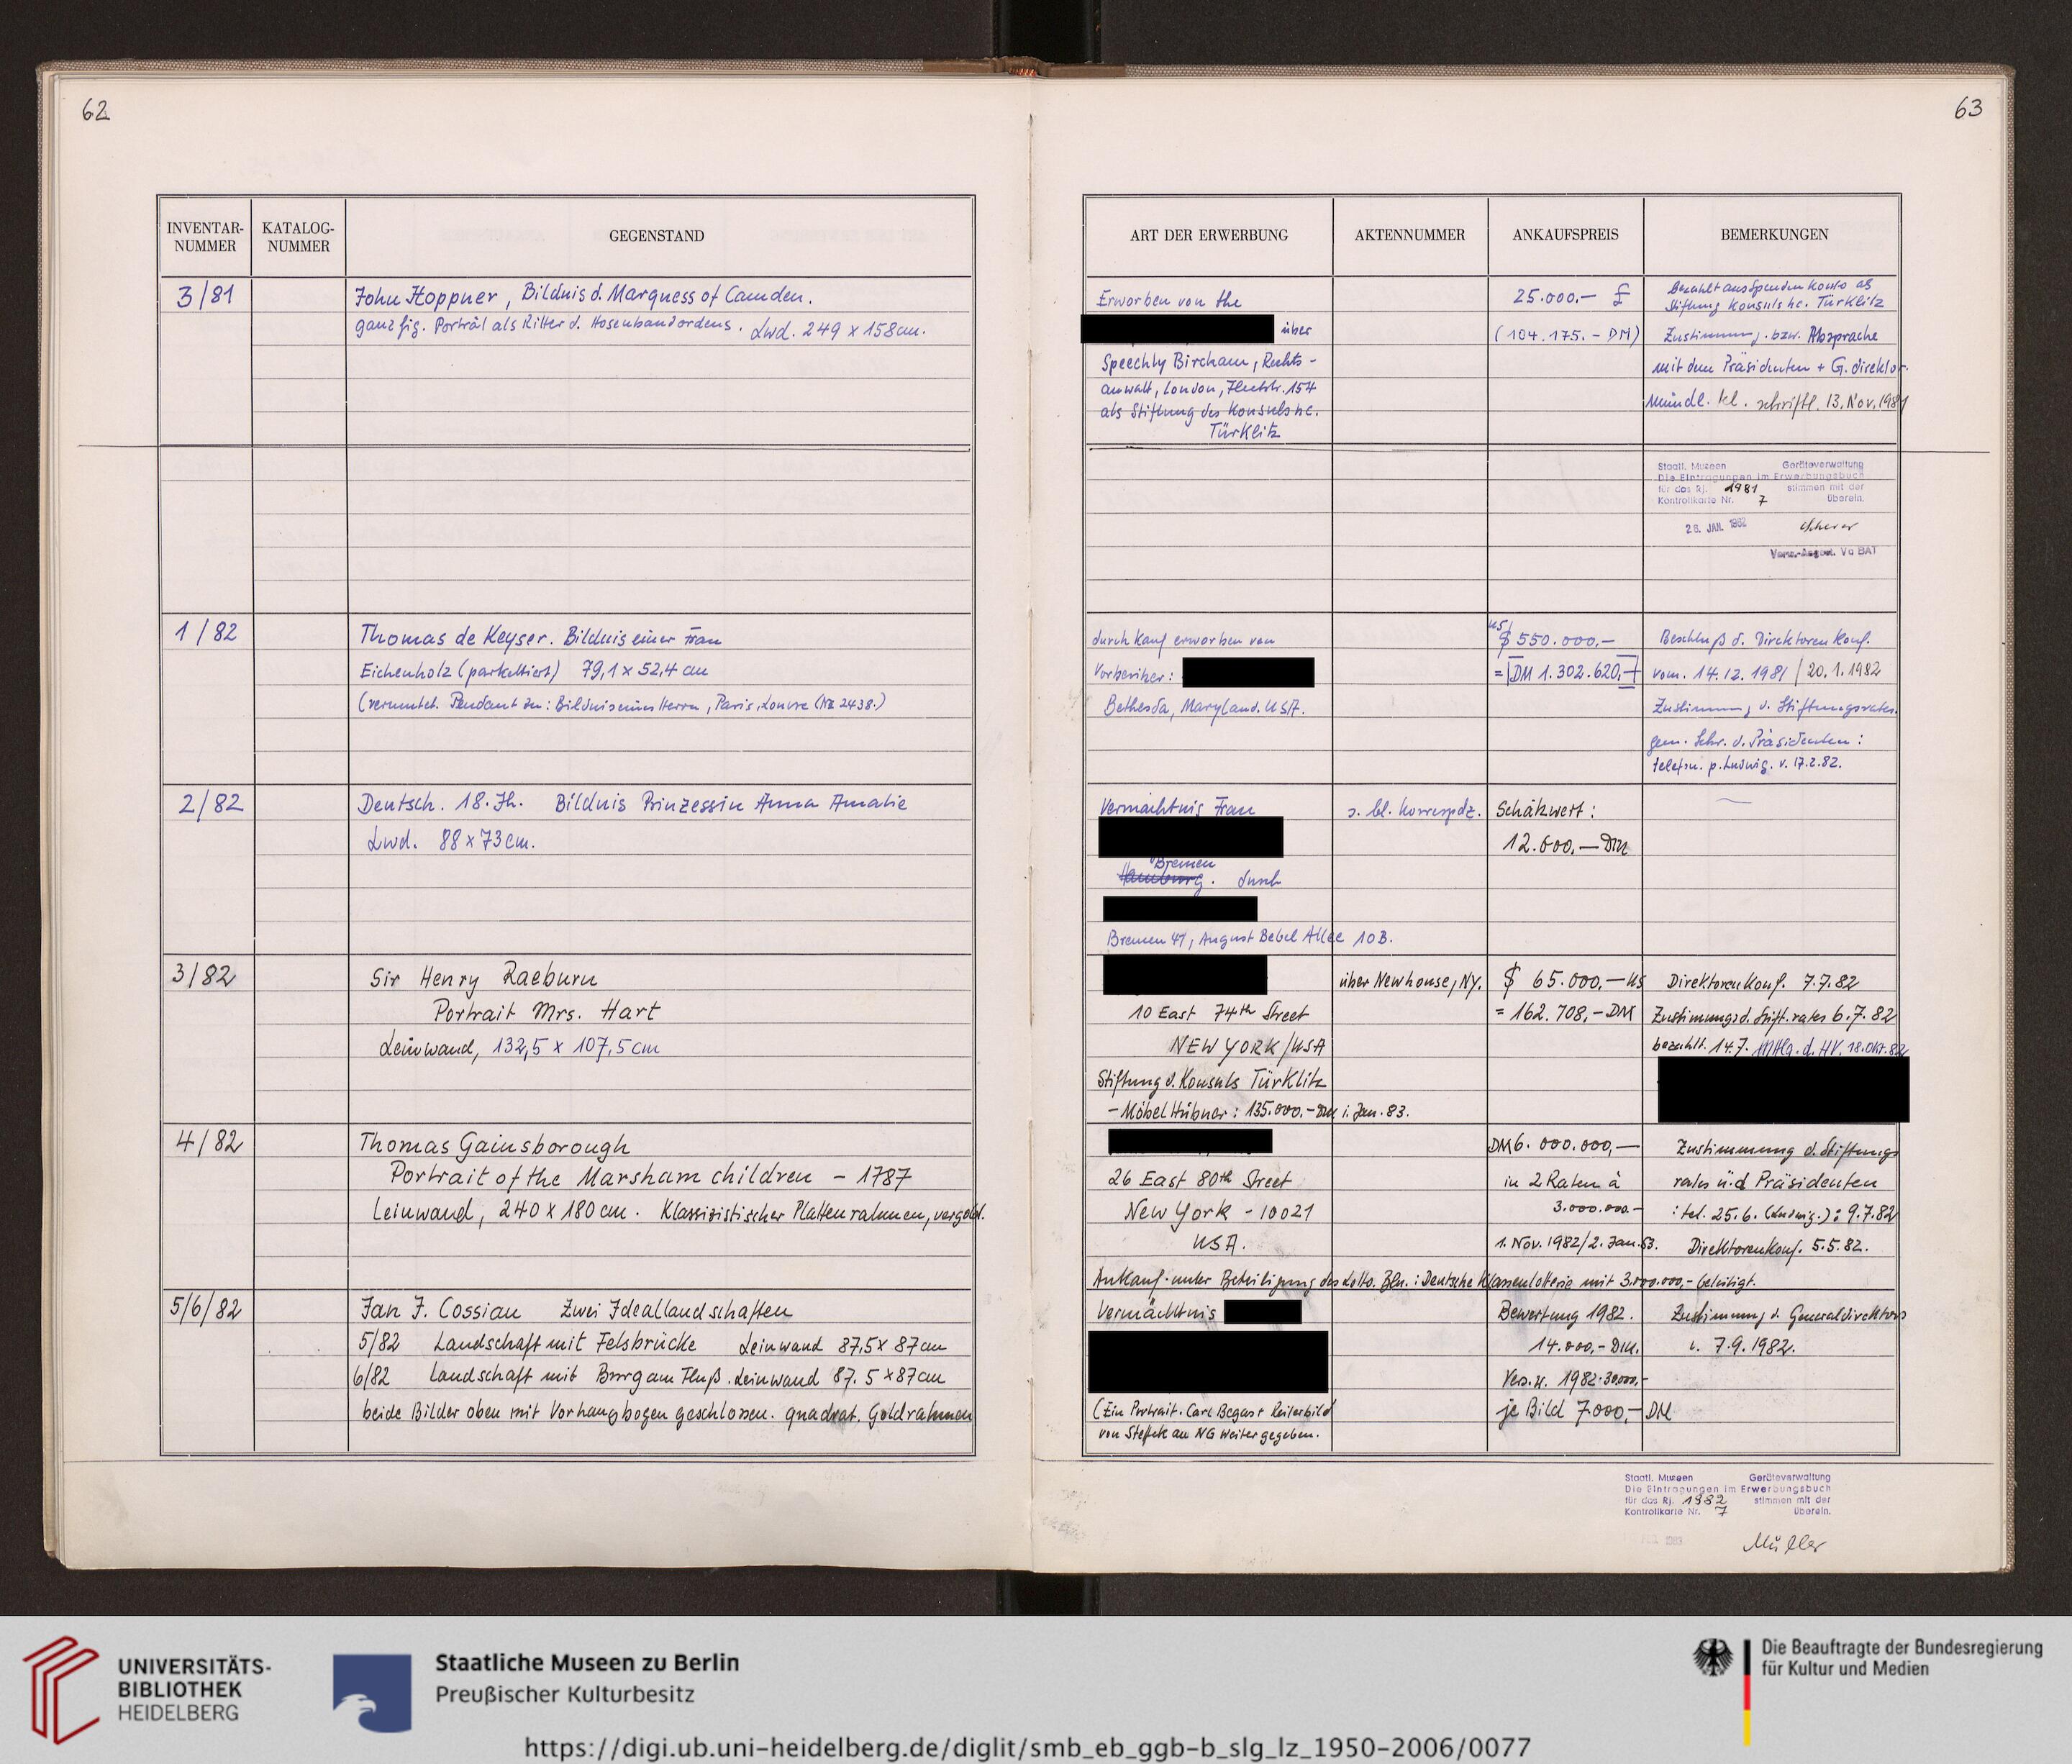 62
INVENTAR-
NUMMER
KATALOG-
NUMMER
GEGENSTAND
3/81
John Hoppner, Bildnis d. Marquess of Camden.
ganzfig. Porträt als Ritter d. Hosenbandordens. Lwd. 249 x 158 cm.
1/82
Thomas de Keyser. Bildnis einer Frau
Eichenholz (parkettiert) 79,1 x 52,4 cm
(vermutl. Pendant zu: Bildnis eines Herrn, Paris, Louvre (Nr. 2438.)
2/82
Deutsch. 18. Jh. Bildnis Prinzessin Anna Amalie
Lwd. 88 x 73 cm.
3/82
Sir Henry Raeburn
Portrait Mrs. Hart
Leinwand, 132,5 x 107,5 cm
4/82
Thomas Gainsborough
Portrait of the Marsham children - 1787
Leinwand, 240 x 180 cm. Klassizistischer Plattenrahmen, vergold.
5/6/82
Jan F. Cossiau Zwei Ideallandschaften
5/82 Landschaft mit Felsbrücke Leinwand 87,5 x 87 cm
6/82 Landschaft mit Burg am Fluß. Leinwand 87.5 x 87 cm
beide Bilder oben mit Vorhangbogen geschlossen. quadrat. Goldrahmen
63
ART DER ERWERBUNG
AKTENNUMMER
ANKAUFSPREIS
BEMERKUNGEN
Erworben von the
über
Speechly Bircham, Rechts-
anwalt, London, Fleetstr. 154
als Stiftung des Konsuls hc.
Türklitz
25.000.- £
(104.175.- DM)
Bezahlt aus Spenden Konto als
Stiftung Konsuls hc. Türklitz
Zustimmung. bzw. Absprache
mit dem Präsidenten + G.direktor.
mündl. schriftl. 13. Nov. 1981
Staatl. Museen Geräteverwaltung
Die Eintragungen im Erwerbungsbuch
für das Rj. 1981 stimmen mit der
Kontrollkarte Nr. 7 überein.
26. JAN. 1982
Verw.-Angest. Vc BAT
durch Kauf erworben von
Vorbesitzer:
Bethesda, Maryland. USA.
US $ 550.000,-
= DM 1.302.620,-
Beschluß d. Direktoren Konf.
vom. 14.12.1981 / 20.1.1982
Zustimmung d. Stiftungsrates.
gem. Schr. d. Präsidenten:
telefon. p. Ludwig. v. 17.2.82.
Vermächtnis Frau
Bremen
Hamburg. durch
Bremen 41, August Bebel Allee 10 B.
s. bl. Korrespdz.
Schätzwert:
12.600,- DM
über Newhouse, NY.
10 East 74th Street
NEW YORK/USA
Stiftung d. Konsuls Türklitz
- Möbel Hübner: 135.000.- DM i. Jan. 83.
$ 65.000,- US
= 162.708,- DM
Direktoren Konf. 7.7.82
Zustimmung d. Stift.rates 6.7.82
bezahlt. 14.7. Mttlg. d. HV. 18.Okt.82
26 East 80th Street
New York - 10021
USA.
DM 6.000.000,-
in 2 Raten à
3.000.000.-
1. Nov. 1982/2. Jan. 83.
Zustimmung d. Stiftungs
rates u. d Präsidenten
: tel. 25.6. (Ludwig.): 9.7.82
Direktorenkonf. 5.5.82.
Ankauf unter Beteiligung des Lotto. Bln.: Deutsche Klassenlotterie mit 3.000.000,- beteiligt.
Vermächtnis
(Ein Portrait. Carl Begas + Reiterbild
von Steffek an NG weitergegeben.
Bewertung 1982.
14.000,- DM.
Vers.w. 1982. 30.000,-
je Bild 7.000,- DM
Zustimmung d. Generaldirektors
v. 7.9.1982.
Staatl. Museen Geräteverwaltung
Die Eintragungen im Erwerbungsbuch
für das Rj. 1982 stimmen mit der
Kontrollkarte Nr. 7 überein.
Müller
UNIVERSITÄTS-
BIBLIOTHEK
HEIDELBERG
Staatliche Museen zu Berlin
Preußischer Kulturbesitz
Die Beauftragte der Bundesregierung
für Kultur und Medien
https://digi.ub.uni-heidelberg.de/diglit/smb_eb_ggb-b_slg_lz_1950-2006/0077